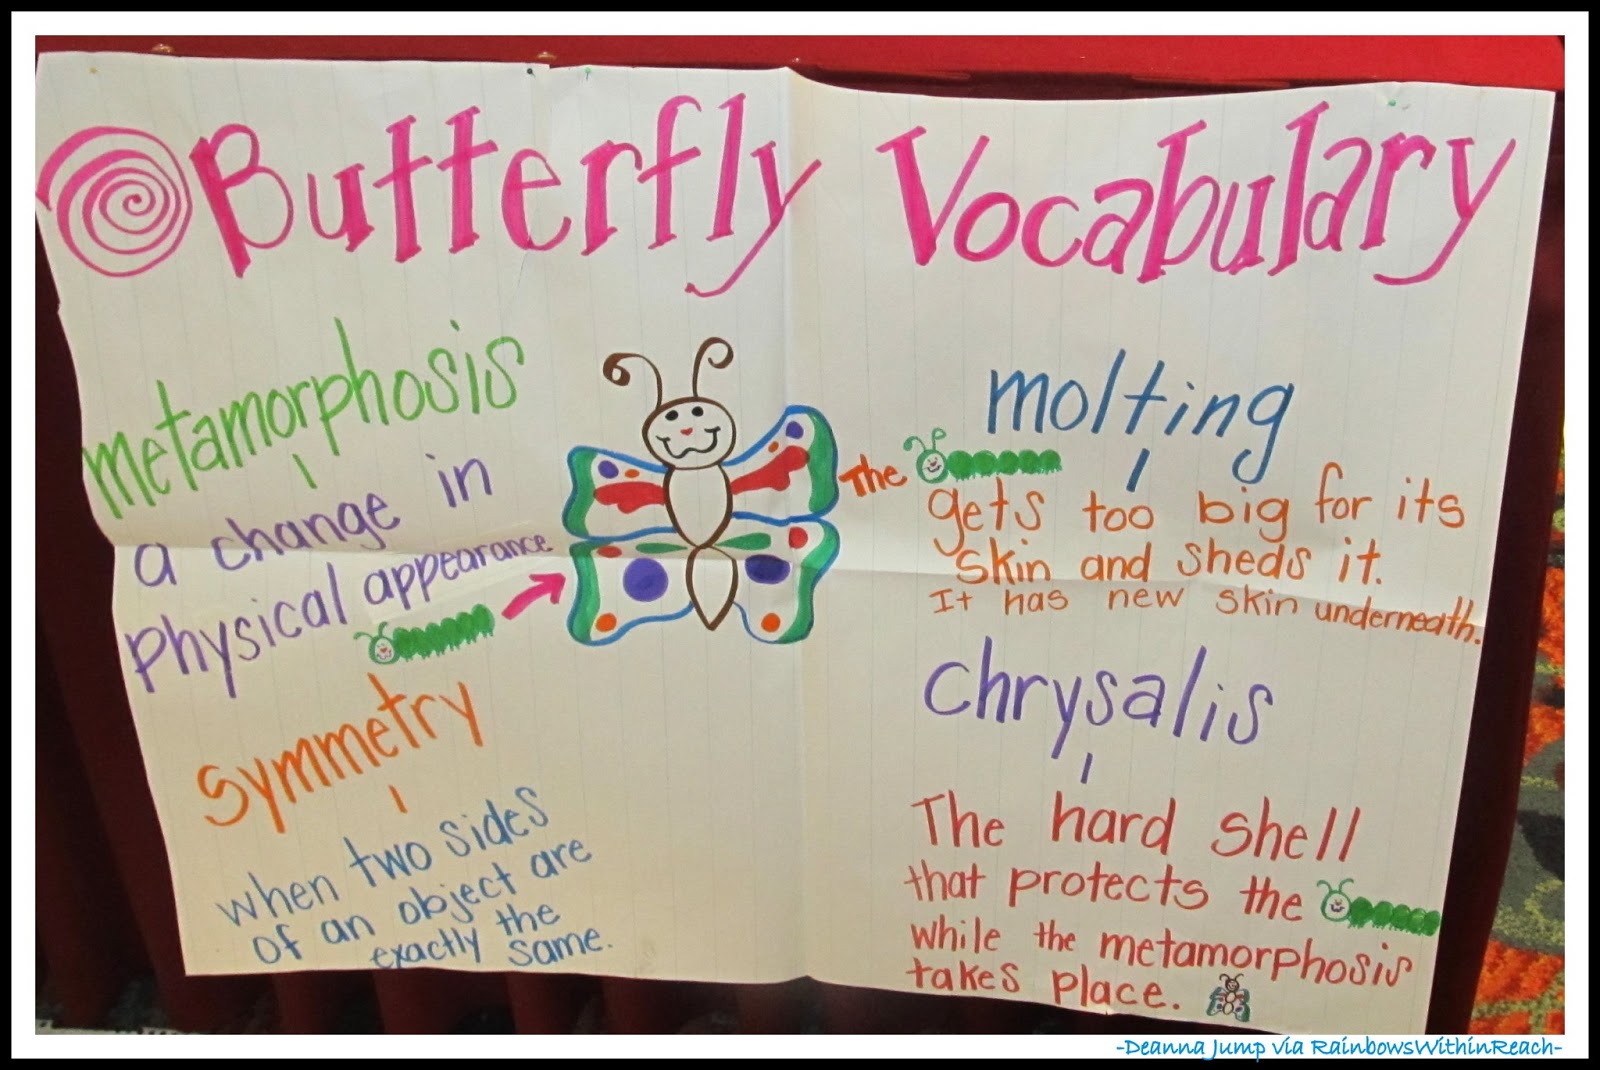 Butterfly Vocabulary
metamorphosis
a change in
physical appearance
symmetry
when two sides
of an object are
exactly the
same.
molting
The
gets too big for its
skin and sheds it.
It has new skin underneath.
chrysalis
The hard shell
that protects the
while the metamorphosis
takes place.
-Deanna Jump via RainbowsWithinReach-